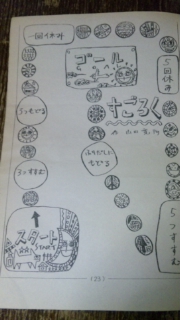 一回休み
ゴール
5回休み
すごろく
5つもどる
ふりだしに
もどる
3つすすむ
スタート
START
5つすすむ